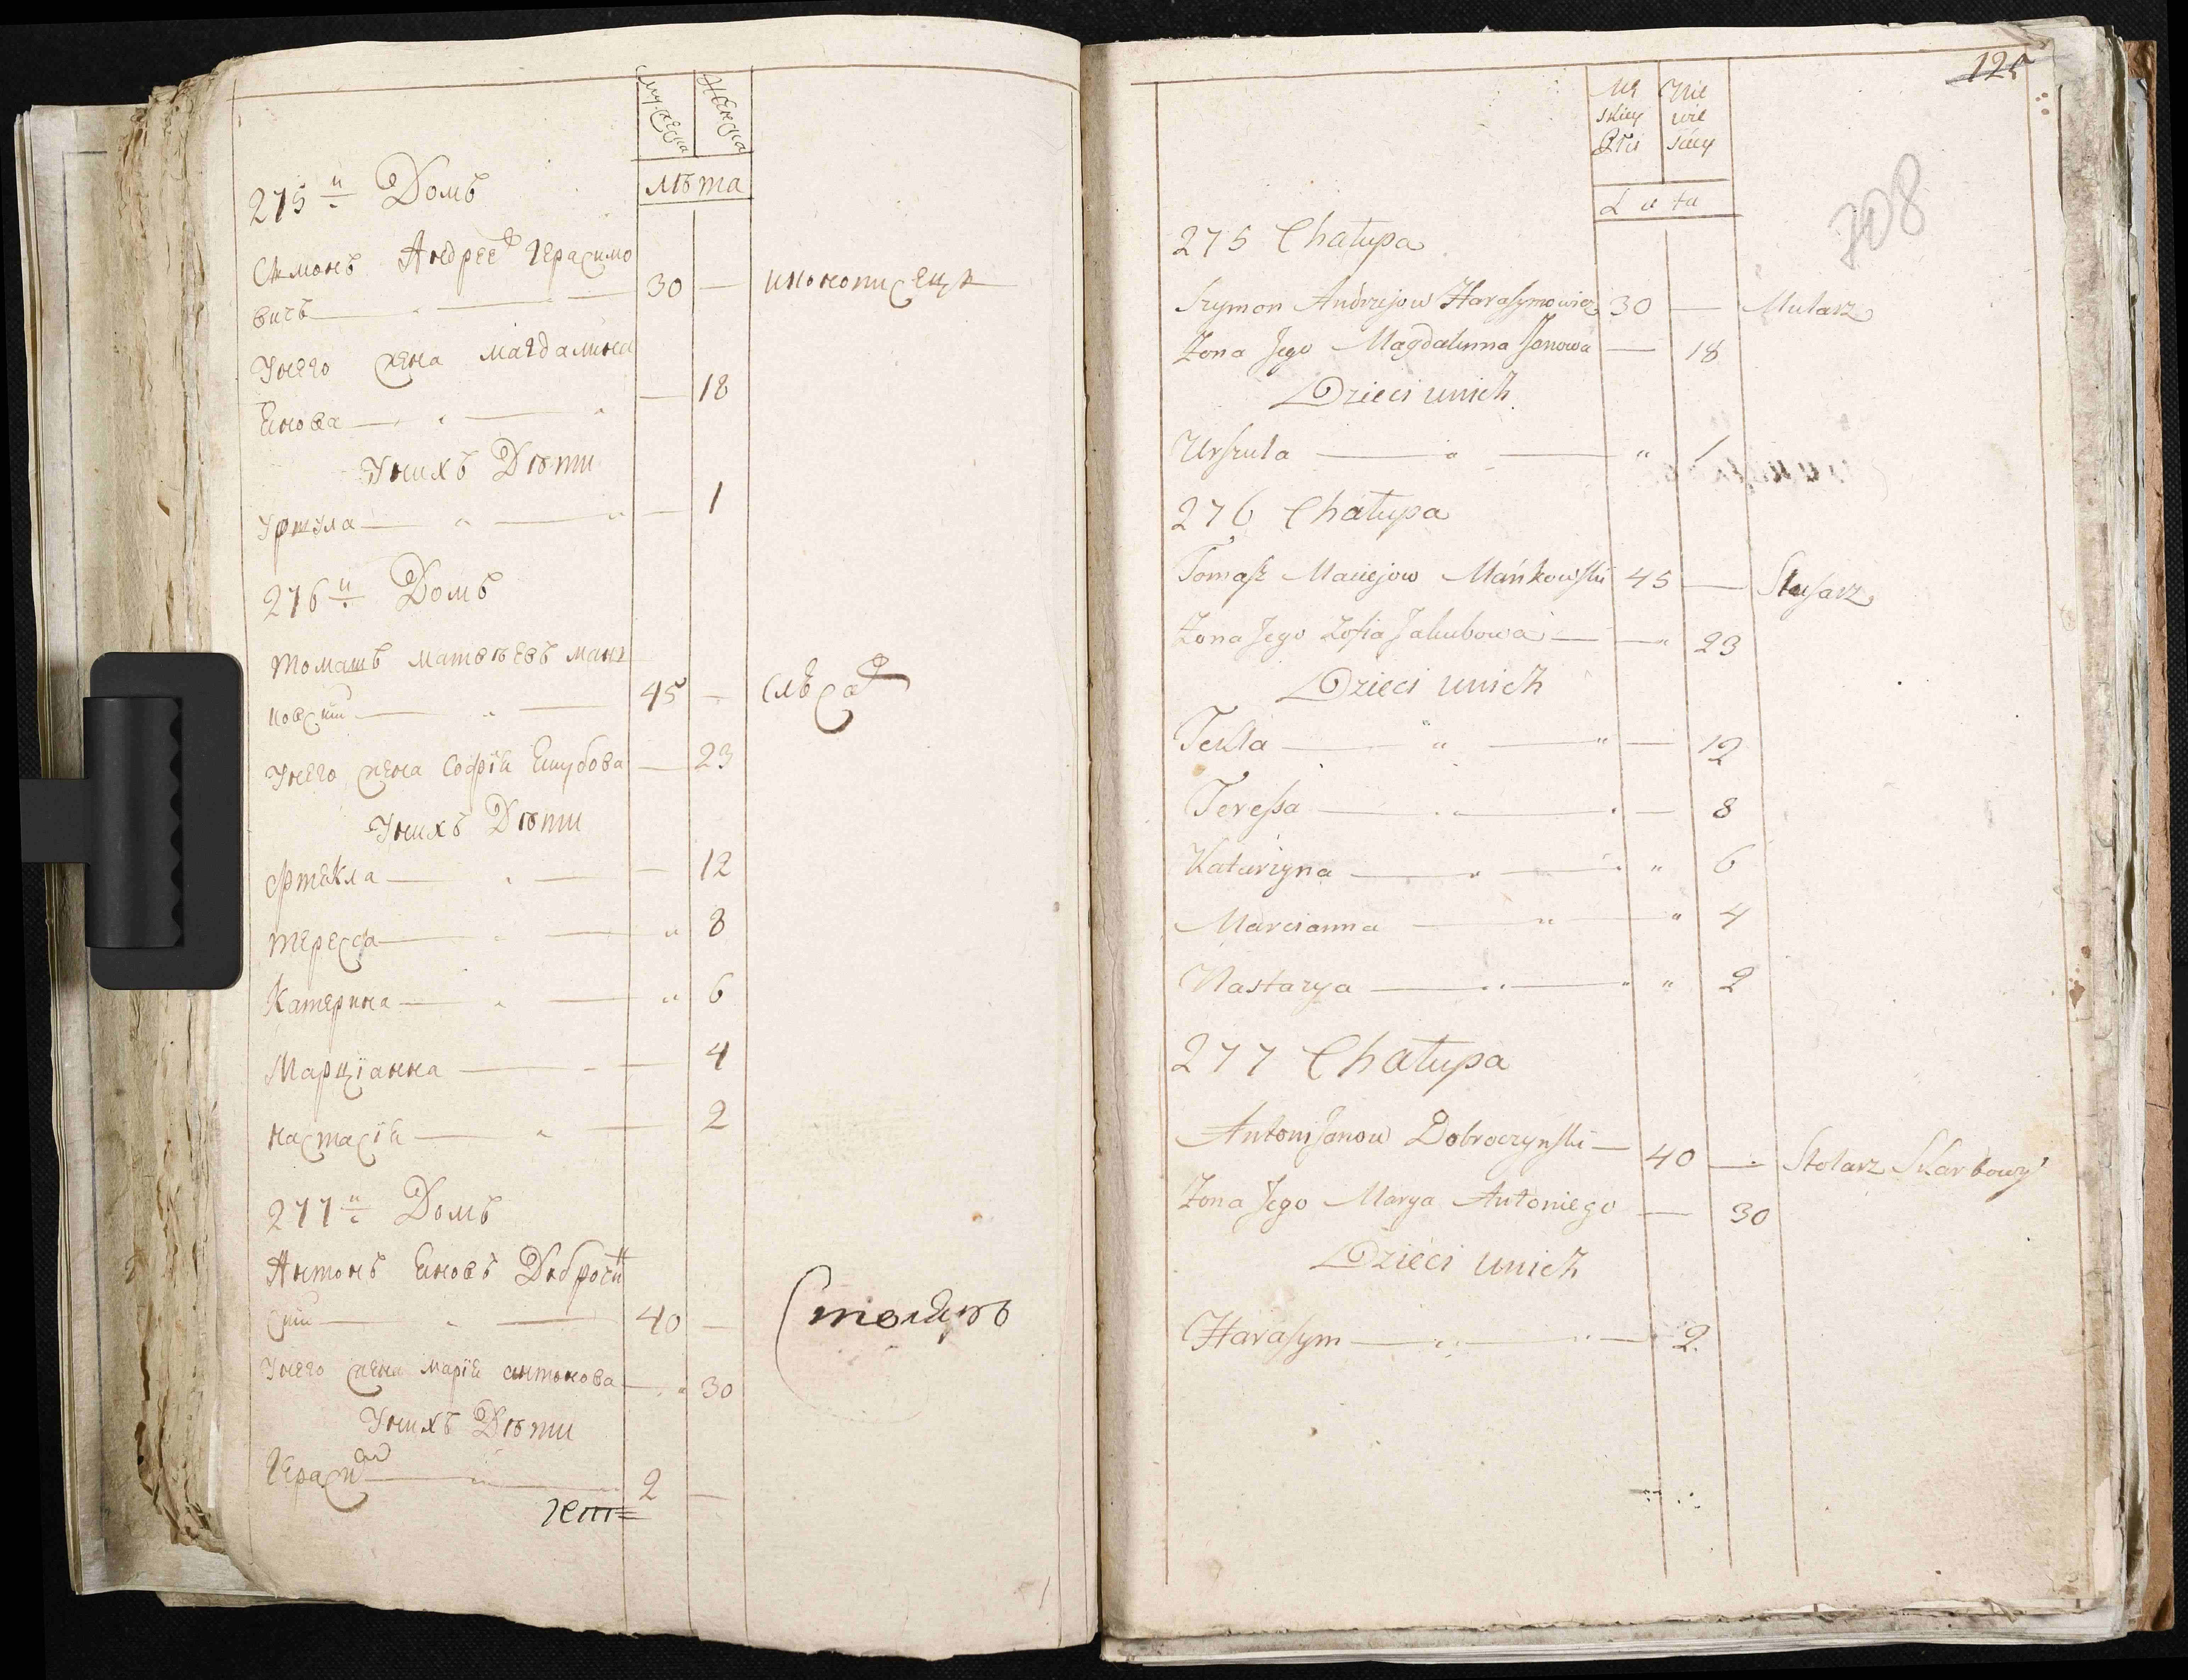 мужеска
женска
лѣта
275й Домъ
Симонъ Андреевъ Герасимо
вичъ 30 — иконописецъ
Унего жена Магдалина
Янова — 18
Унихъ Дѣти
Уршула — 1
276й Домъ
Томашъ Матвѣевъ Манг
ковскій 45 — слѣсар
Унего жена Софія Якубова — 23
Унихъ Дѣти
Фтекла — 12
Тересса " 8
Катерина " 6
Марціанна — 4
Настасія — 2
277й Домъ
Антонъ Яновъ Доброчин
скій 40 — Столяръ
Унего жена Марія Антонова — 30
Унихъ Дѣти
Герасим 2 —
125
Mę
skiey
Płci
Nie
wie
sciey
Lata
308
275 Chałupa
Szymon Andrzejow Harasymowicz 30 — Mularz
Zona Jego Magdalenna Janowa — 18
Dzieci unich
Urszula " 1
276 Chałupa
Tomasz Maciejow Mańkowski 45 — Slusarz
Zona Jego Zofia Jakubowa — 23
Dzieci unich
Tekla — 12
Teressa — 8
Katarzyna " 6
Marcianna " 4
Nastazya " 2
277 Chałupa
Antoni Janow Dobroczynski — 40 — Stolarz Skarbowy
Zona Jego Marya Antoniego — 30
Dzieci unich
Harasym — 2